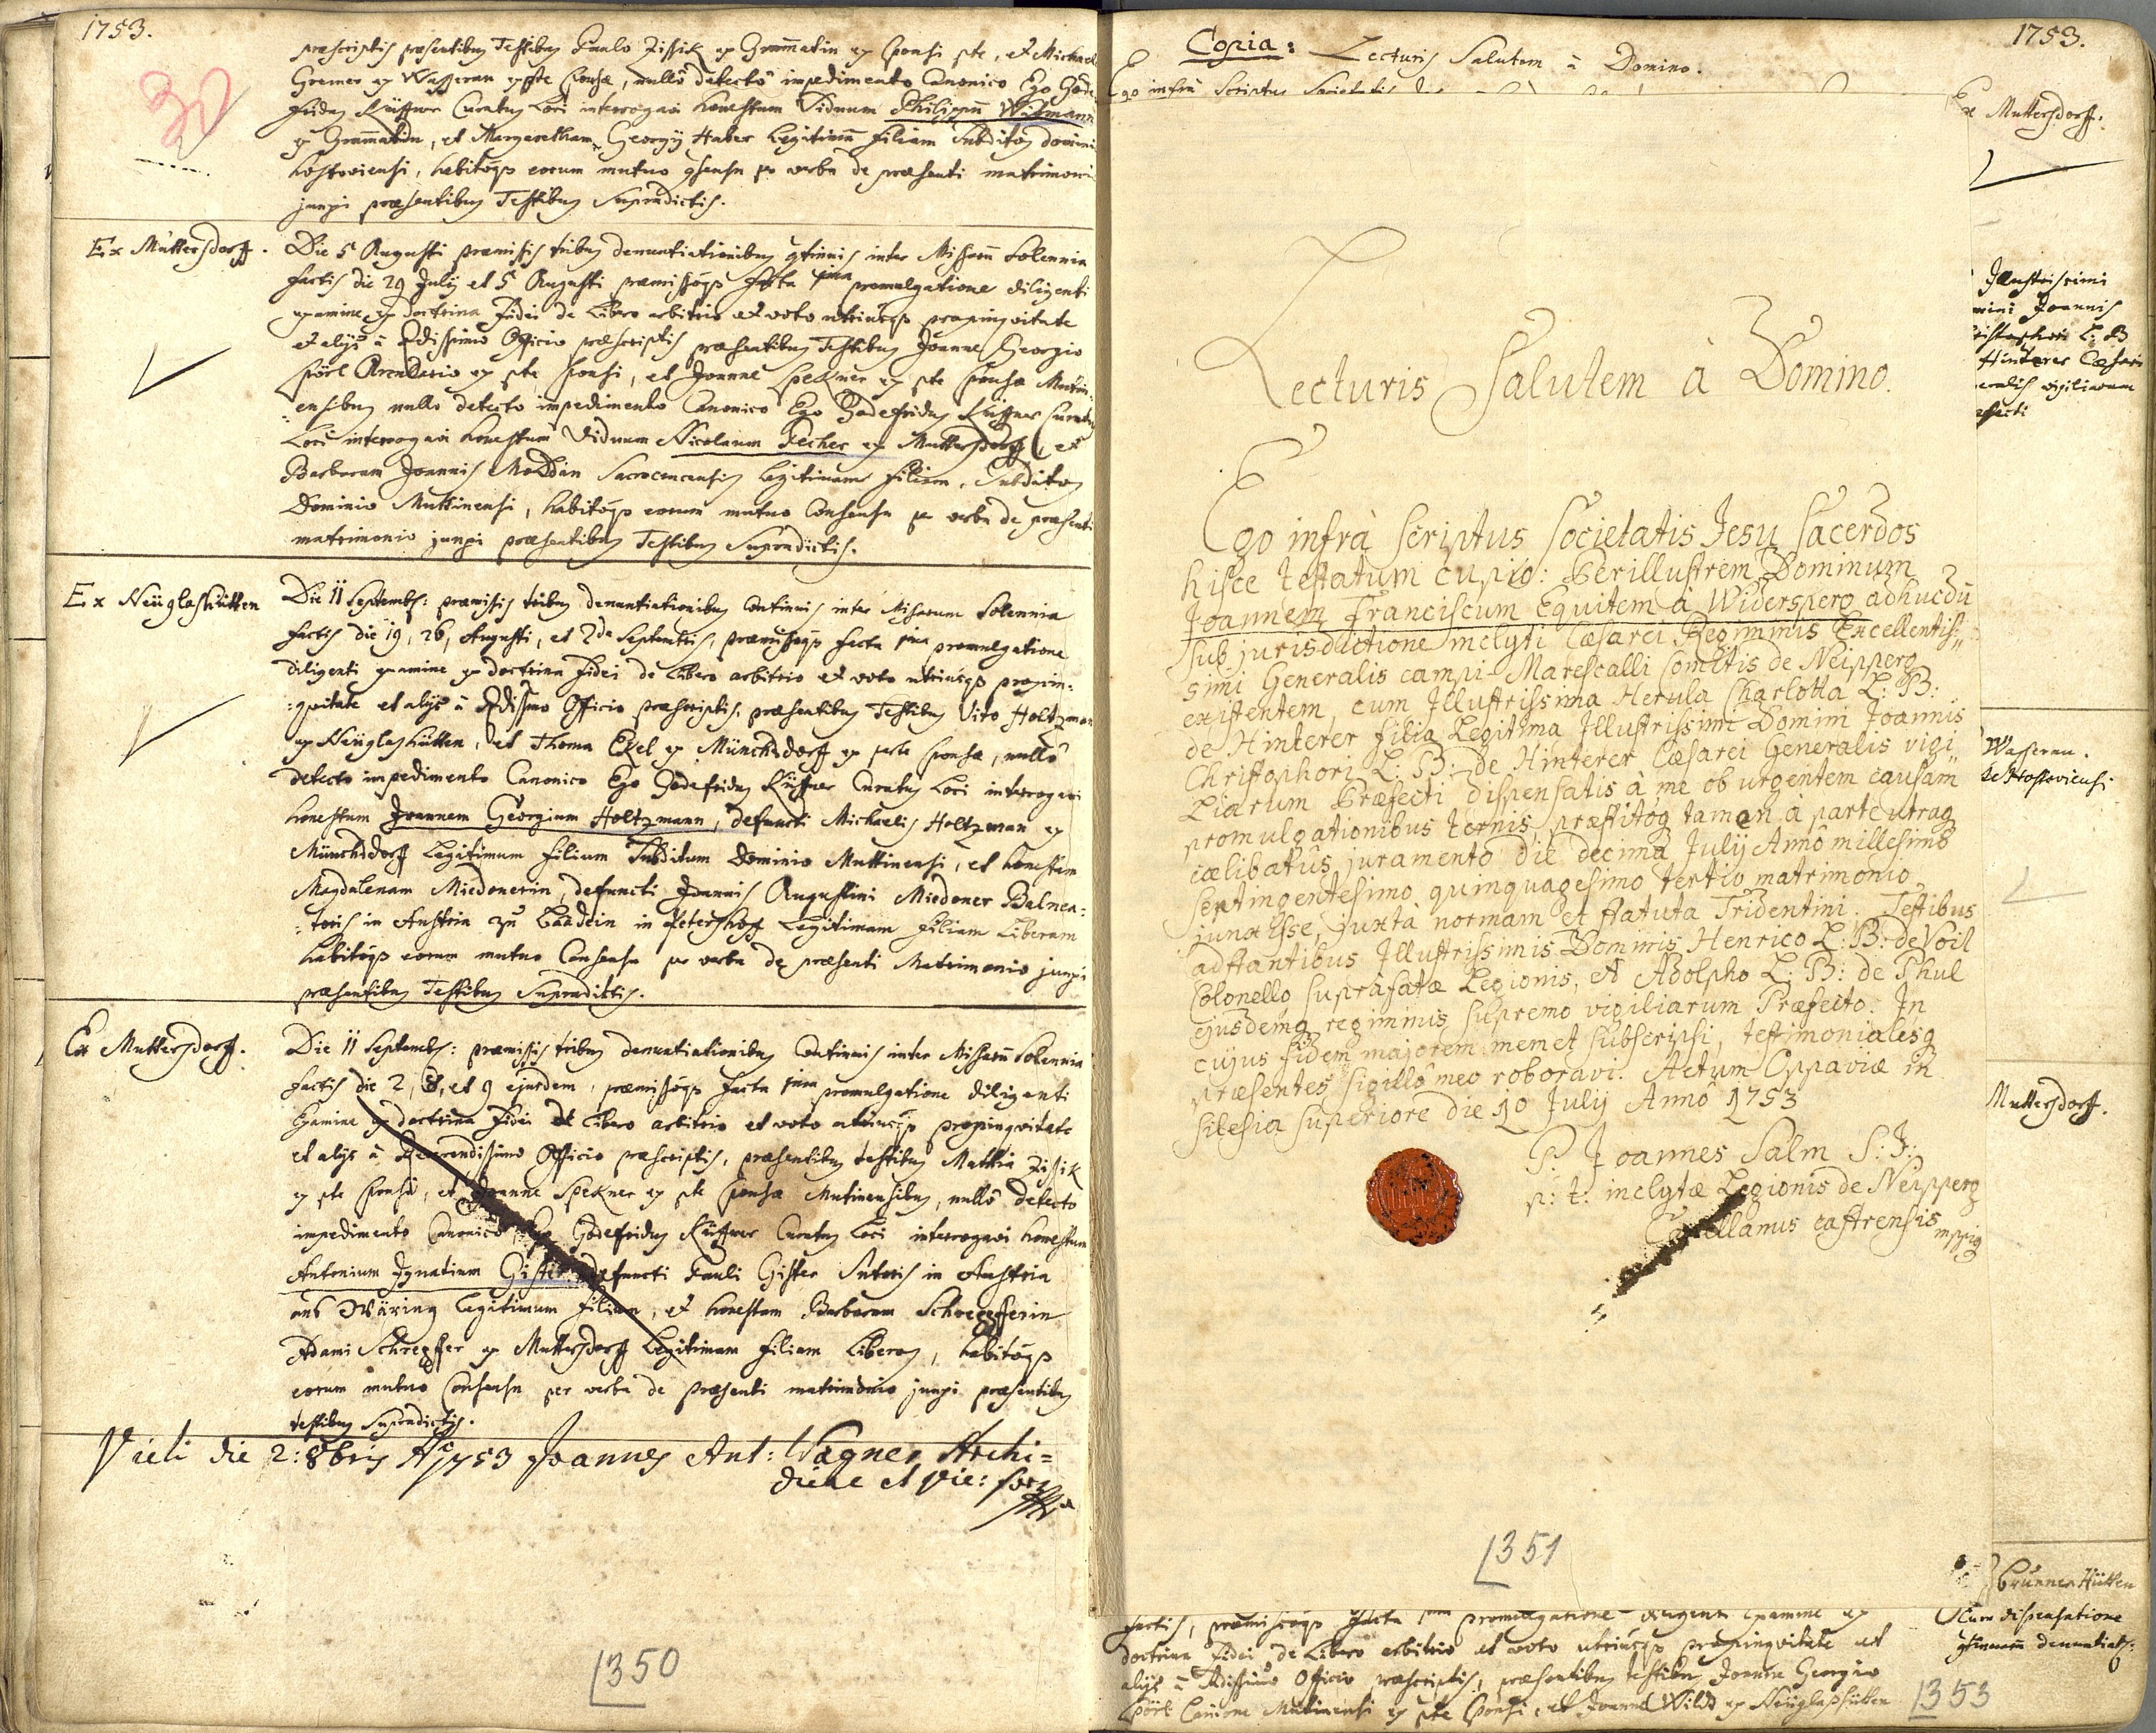 1753.
præscriptis præsentibus Testibus Paulo Zissik ex Grammatin ex Sponsi pte, et Michael
Gremer ex Wasseran ex pte Sponsæ, nullô detectô impedimento Canonico Ego Gode-
fridus Küffner Curatus Loci interrogavi honestum Viduum Philippum Wittmann
ex Grammatin, et Margaretham Georgij Huber Legitimam Filiam Subditos Domini
Hostoviensi, habitoqs eorum mutuo consensu per verba de præsenti matrimoni
junxi præsentibus Testibus Supradictis.
Ex Muttersdorff.
Die 5 Augusti præmissis tribus denuntiationibus continuis inter Missarum Solemnia
factis die 29 July et 5 Augusti præmissoqs facta promulgatione diligenti
examine ex doctrina Fidei de Libero arbitrio et voto utriusqs propinqvitate
et alijs à Officio præscriptis præsentibus Testibus Joanne Georgio
Pörl Arendario ex pte Sponsi, et Joanne Spekner ex pte Sponsæ Mutin-
ensibus nullo detecto impedimento Canonico Ego Godefridus Küffner Curatus
Loci interrogavi honestum Viduum Nicolaum Fecher ex Muttersdorff, et
Barbaram Joannis Legitimam Filiam, Subditos
Dominio Muttinensi, habitoqs eorum mutuo Consensu per verba de præsenti
matrimonio junxi præsentibus Testibus Supradictis.
Ex Neüglashütten
Die 11 Septembr: præmissis tribus denuntiationibus Continuis inter Missarum Solemnia
factis die 19, 26, Augusti, et 2da Septembris, præmissoqs facta promulgatione
diligenti examine ex doctrina Fidei de Libero arbitrio et voto utriusqs propin:
:qvitate et alijs à Officio præscriptis, præsentibus Testibus Vito Holtzman
ex Neüglashütten, et Thoma Exel ex Münchsdorff ex parte Sponsæ, nullô
detecto impedimento Canonico Ego Godefridus Küffner Curatus Loci interrogavi
honestum Joannem Georgium Holtzmann, defuncti Michaelis Holtzman ex
Münchsdorff Legitimum Filium Subditum Dominio Muttinensi, et honestam
Magdalenam Miedonerin, defuncti Joannis Augustini Miedoner Balnea:
:toris in Austria zu in Petershoff Legitimam Filiam Liberam
habitoqs eorum mutuo Consensu per verba de præsenti Matrimonio junxi
præsentibus Testibus Supradictis.
Ex Muttersdorff.
Die 11 Septembr: præmissis tribus denuntiationibus Continuis inter Missarum Solemnia
factis die 2, 8, et 9 ejusdem, præmissoqs facta promulgatione diligenti
Examine ex doctrina Fidei de Libero arbitrio et voto utriusqs propinqvitate
et alijs à Reverendissimo Officio præscriptis, præsentibus testibus Mathia Zissik
ex pte Sponsi, et Joanne Spekner ex pte Sponsæ Mutinensibus, nullô detecto
impedimento Canonico Ego Godefridus Küffner Curatus Loci interrogavi honestum
Antonium Ignatium Gister defuncti Pauli Gister Sutoris in Austria
aus Wäring Legitimum Filium, et honestam Barbaram Schreppferin
Adami Schrepffer ex Muttersdorff Legitimam Filiam Liberos, habitoqs
eorum mutuo Consensu per verba de præsenti matrimonio junxi præsentibus
testibus Supradictis.
Vidi die 2: 8bris Ao 1753 Joannes Ant: Wagner Archi=
diac et Vic: for
1350
1753.
Copia: Lecturis Salutem à Domino.
Ego infra Scriptus Societatis
Ex Muttersdorff.
Illustrissimi
mini Joannis
ristophori L: B
Hinterer Cæsari
eralis vigiliarum
æfecti
Lecturis Salutem à Domino.
Ego infrà scriptus Societatis Jesu Sacerdos
hisce testatum cupio: Perillustrem Dominum
Joannem Franciscum Equitem à Widersperg adhucdū
sub jurisdictione inclyti Cæsarei Regiminis Excellentis=
simi Generalis campi-Marescalli Comitis de Neipperg
existentem, cum Illustrissima Herula Charlotta L: B:
de Hinterer filia Legitima Illustrissimi Domini Joannis
Christophori L: B: de Hinterer Cæsarei Generalis vigi=
liarum Præfecti dispensatis à me ob urgentem causam
promulgationibus ternis, præstitoq tamen à parte utraq
cælibatûs juramento die decima Julij Annô millesimô
septingentesimo quinquagesimo tertio matrimonio
junxisse, juxtà normam et statuta Tridentini. Testibus
adstantibus Illustrissimis Dominis Henrico L: B: de Voil
Colonello supràfatæ Legionis, et Adolpho L: B: de Phul
ejusdemq regiminis supremo vigiliarum Præfecto. In
cujus fidem majorem memet subscripsi, testimonialesq
præsentes sigillô meo roboravi. Actum Oppaviæ in
Silesia superiore die 10 Julij Annô 1753
P: Joannes Salm S: J:
p: t: inclytæ Legionis de Neipperg
Capellanus castrensis mppia
Wasseran.
de Hostoviensi.
Muttersdorff.
1351
Brunnen Hütten
Cum dispensatione
denuntiat:
factis, præmissoqs facta promulgatione diligenti Examine ex
doctrina Fidei de Libero arbitrio et voto utriusqs propinqvitate et
alijs à Officio præscriptis, præsentibus testibus Joanne Georgio
Pörl Mutinensi ex pte Sponsi, et Joanne Wild ex Neüglashütten
1353